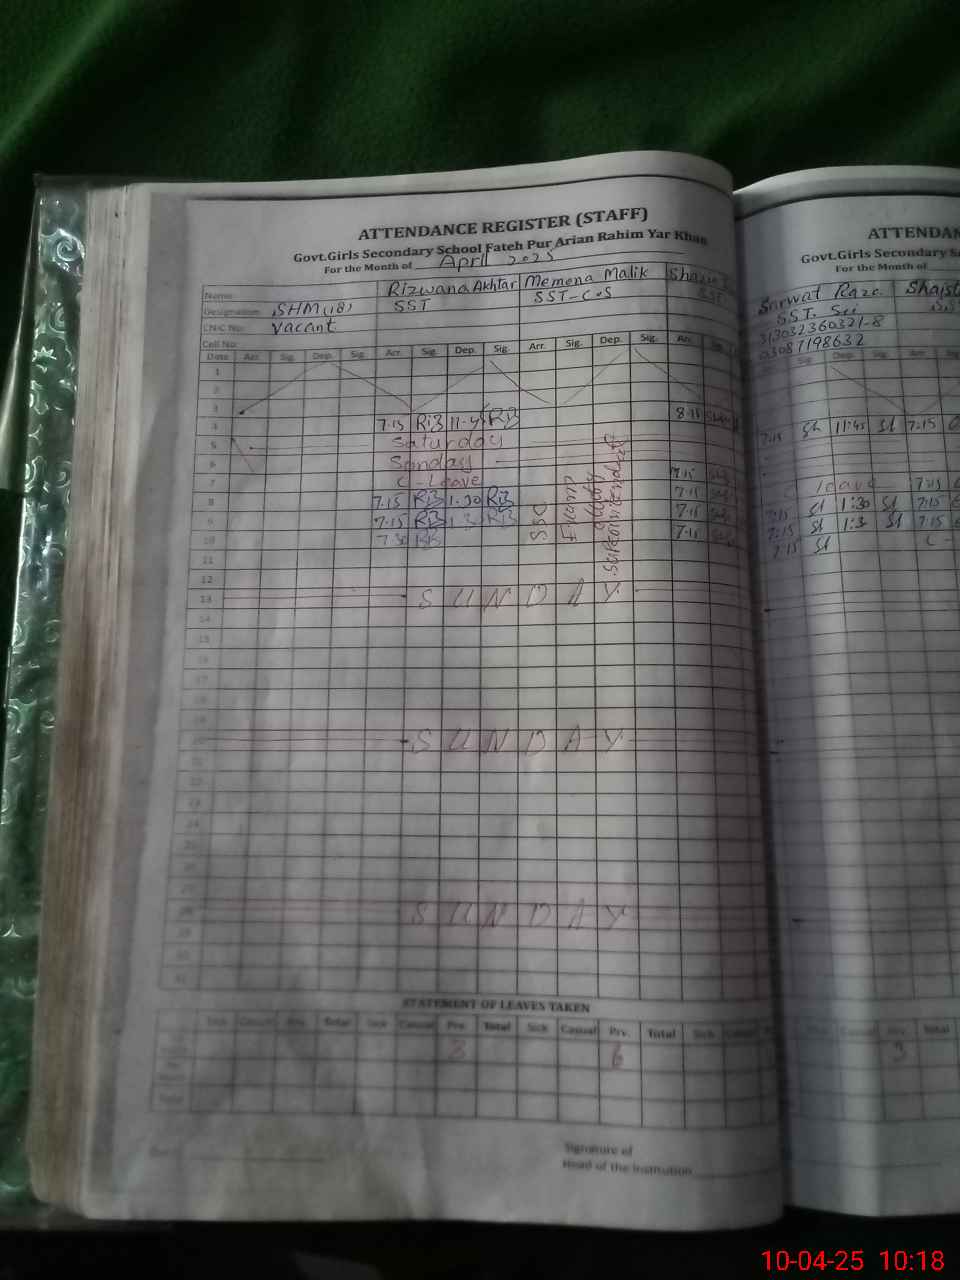 ATTENDANCE REGISTER (STAFF)
Govt.Girls Secondary School Fateh Pur Arian Rahim Yar Khan
For the Month of April 2025
Name: Rizwana Akhtar Memona Malik
Designation: SHM (18) SST SST-C.S SST
CNIC No: Vacant
Cell No:
Date Arr. Sig. Dep. Sig. Arr. Sig. Dep. Sig. Arr. Sig. Dep. Sig. Arr.
1
2
3
4 7.15 RB 11.45 RB 8.15
5 Saturday
6 Sunday
7 C-Leave 7.15
8 7.15 RB 1.30 RB 7.15
9 7.15 RB 1.3 RB 7.15
10 7.30 7.15
SSC
Exam
duty
Superintendent
11
12
13 SUNDAY
14
15
16
17
18
19
20 SUNDAY
21
22
23
24
25
26
27 SUNDAY
28
29
30
31
STATEMENT OF LEAVES TAKEN
Sick Casual Prv. Total Sick Casual Prv. Total Sick Casual Prv. Total Sick Casual
3 6
Total
Signature of
Head of the Institution
ATTENDAN
Govt.Girls Secondary S
For the Month of
Sarwat Shaist
SST. Sci
313032360321-8
03087198632
7:15 SL 11:45 SL 7:15
leave 7:15
7:15 SL 1:30 SL 7:15
7:15 SL 1:3 SL 7:15
7:15 SL C-
Prv. Total
3
10-04-25 10:18